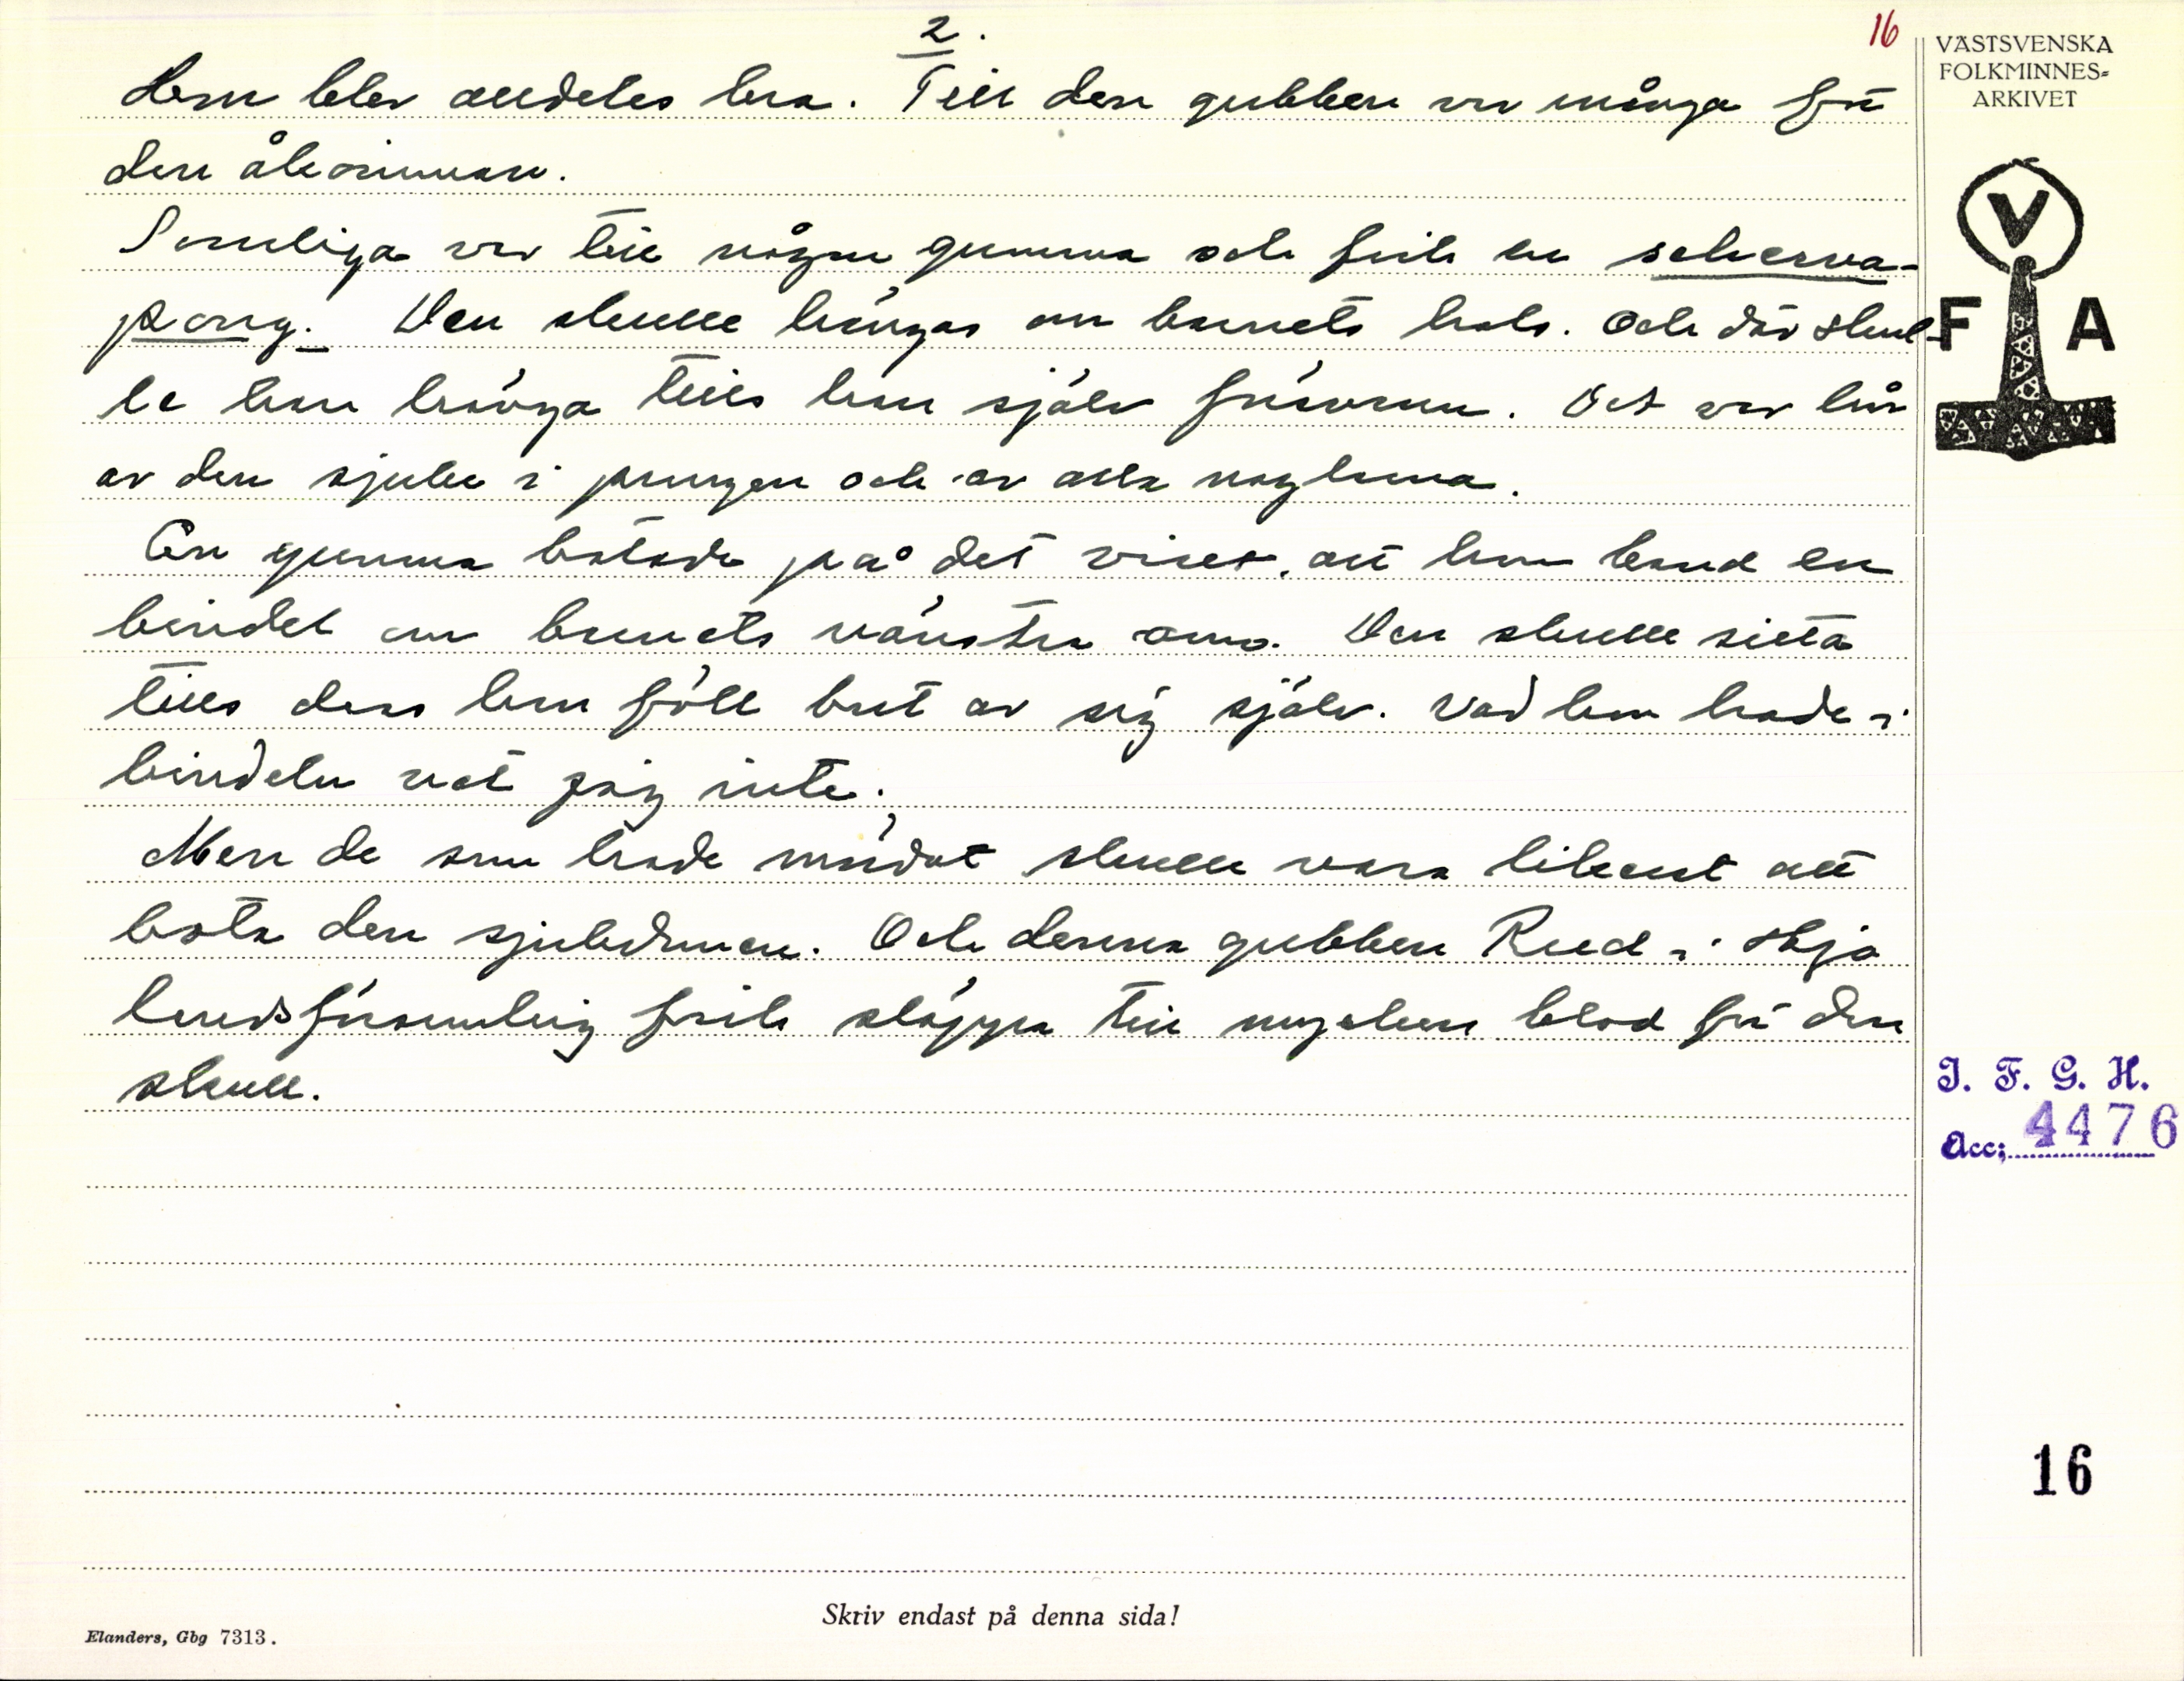 2.
16
VÄSTSVENSKA
FOLKMINNES=
ARKIVET
Hon blev alldeles bra. Till den gubben var många för
den åkomman.
Somliga var till någon gumma och fick en skerva-
pong. Den skulle hängas om barnets hals. Och där skul-
le han hänga tills han själv försvann. Det var hår
av den sjuke i pungen och av alla naglarna.
En gumma botade på det viset, att hon band en
bindel om barnets vänstra arm. Den skulle sitta
tills dess hon föll bort av sig själv. Vad hon hade i
bindeln vet jag inte.
Men de som hade mördat skulle vara likast att
bota den sjukdomen. Och denna gubben Rud i Skja
lundsförsamling fick släppa till mycken blod för den
skull.
V
F A
I. F. G. H.
Acc; 4476
16
Skriv endast på denna sida!
Elanders, Gbg 7313.